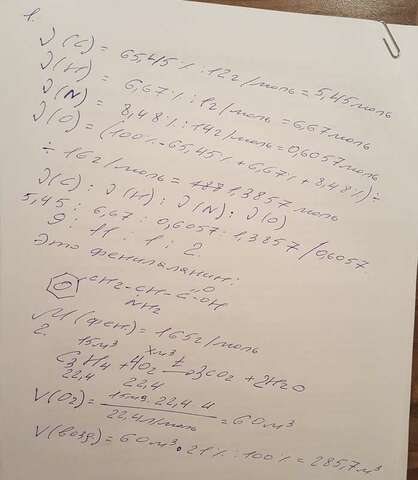 1.
ν(C) = 65,45% : 12г/моль = 5,45 моль
ν(H) = 6,67% : 1г/моль = 6,67 моль
ν(N) = 8,48% : 14г/моль = 0,6057 моль
ν(O) = (100% - 65,45% + 6,67% + 8,48%) ÷
÷ 16 г/моль = 1,3857 моль
ν(C) : ν(H) : ν(N) : ν(O)
5,45 : 6,67 : 0,6057 : 1,3857 /0,6057
9 : 11 : 1 : 2
Это фенилаланин:
CH2-CH-C-OH
O
NH2
M (фен) = 165г/моль
2.
15м³ xм³ t
C3H4 + 4O2 → 3CO2 + 2H2O
22,4 22,4
V(O2) = 15м³ · 22,4 · 4 / 22,4 л/моль = 60м³
V(возд) = 60м³ · 21% : 100% = 285,7м³